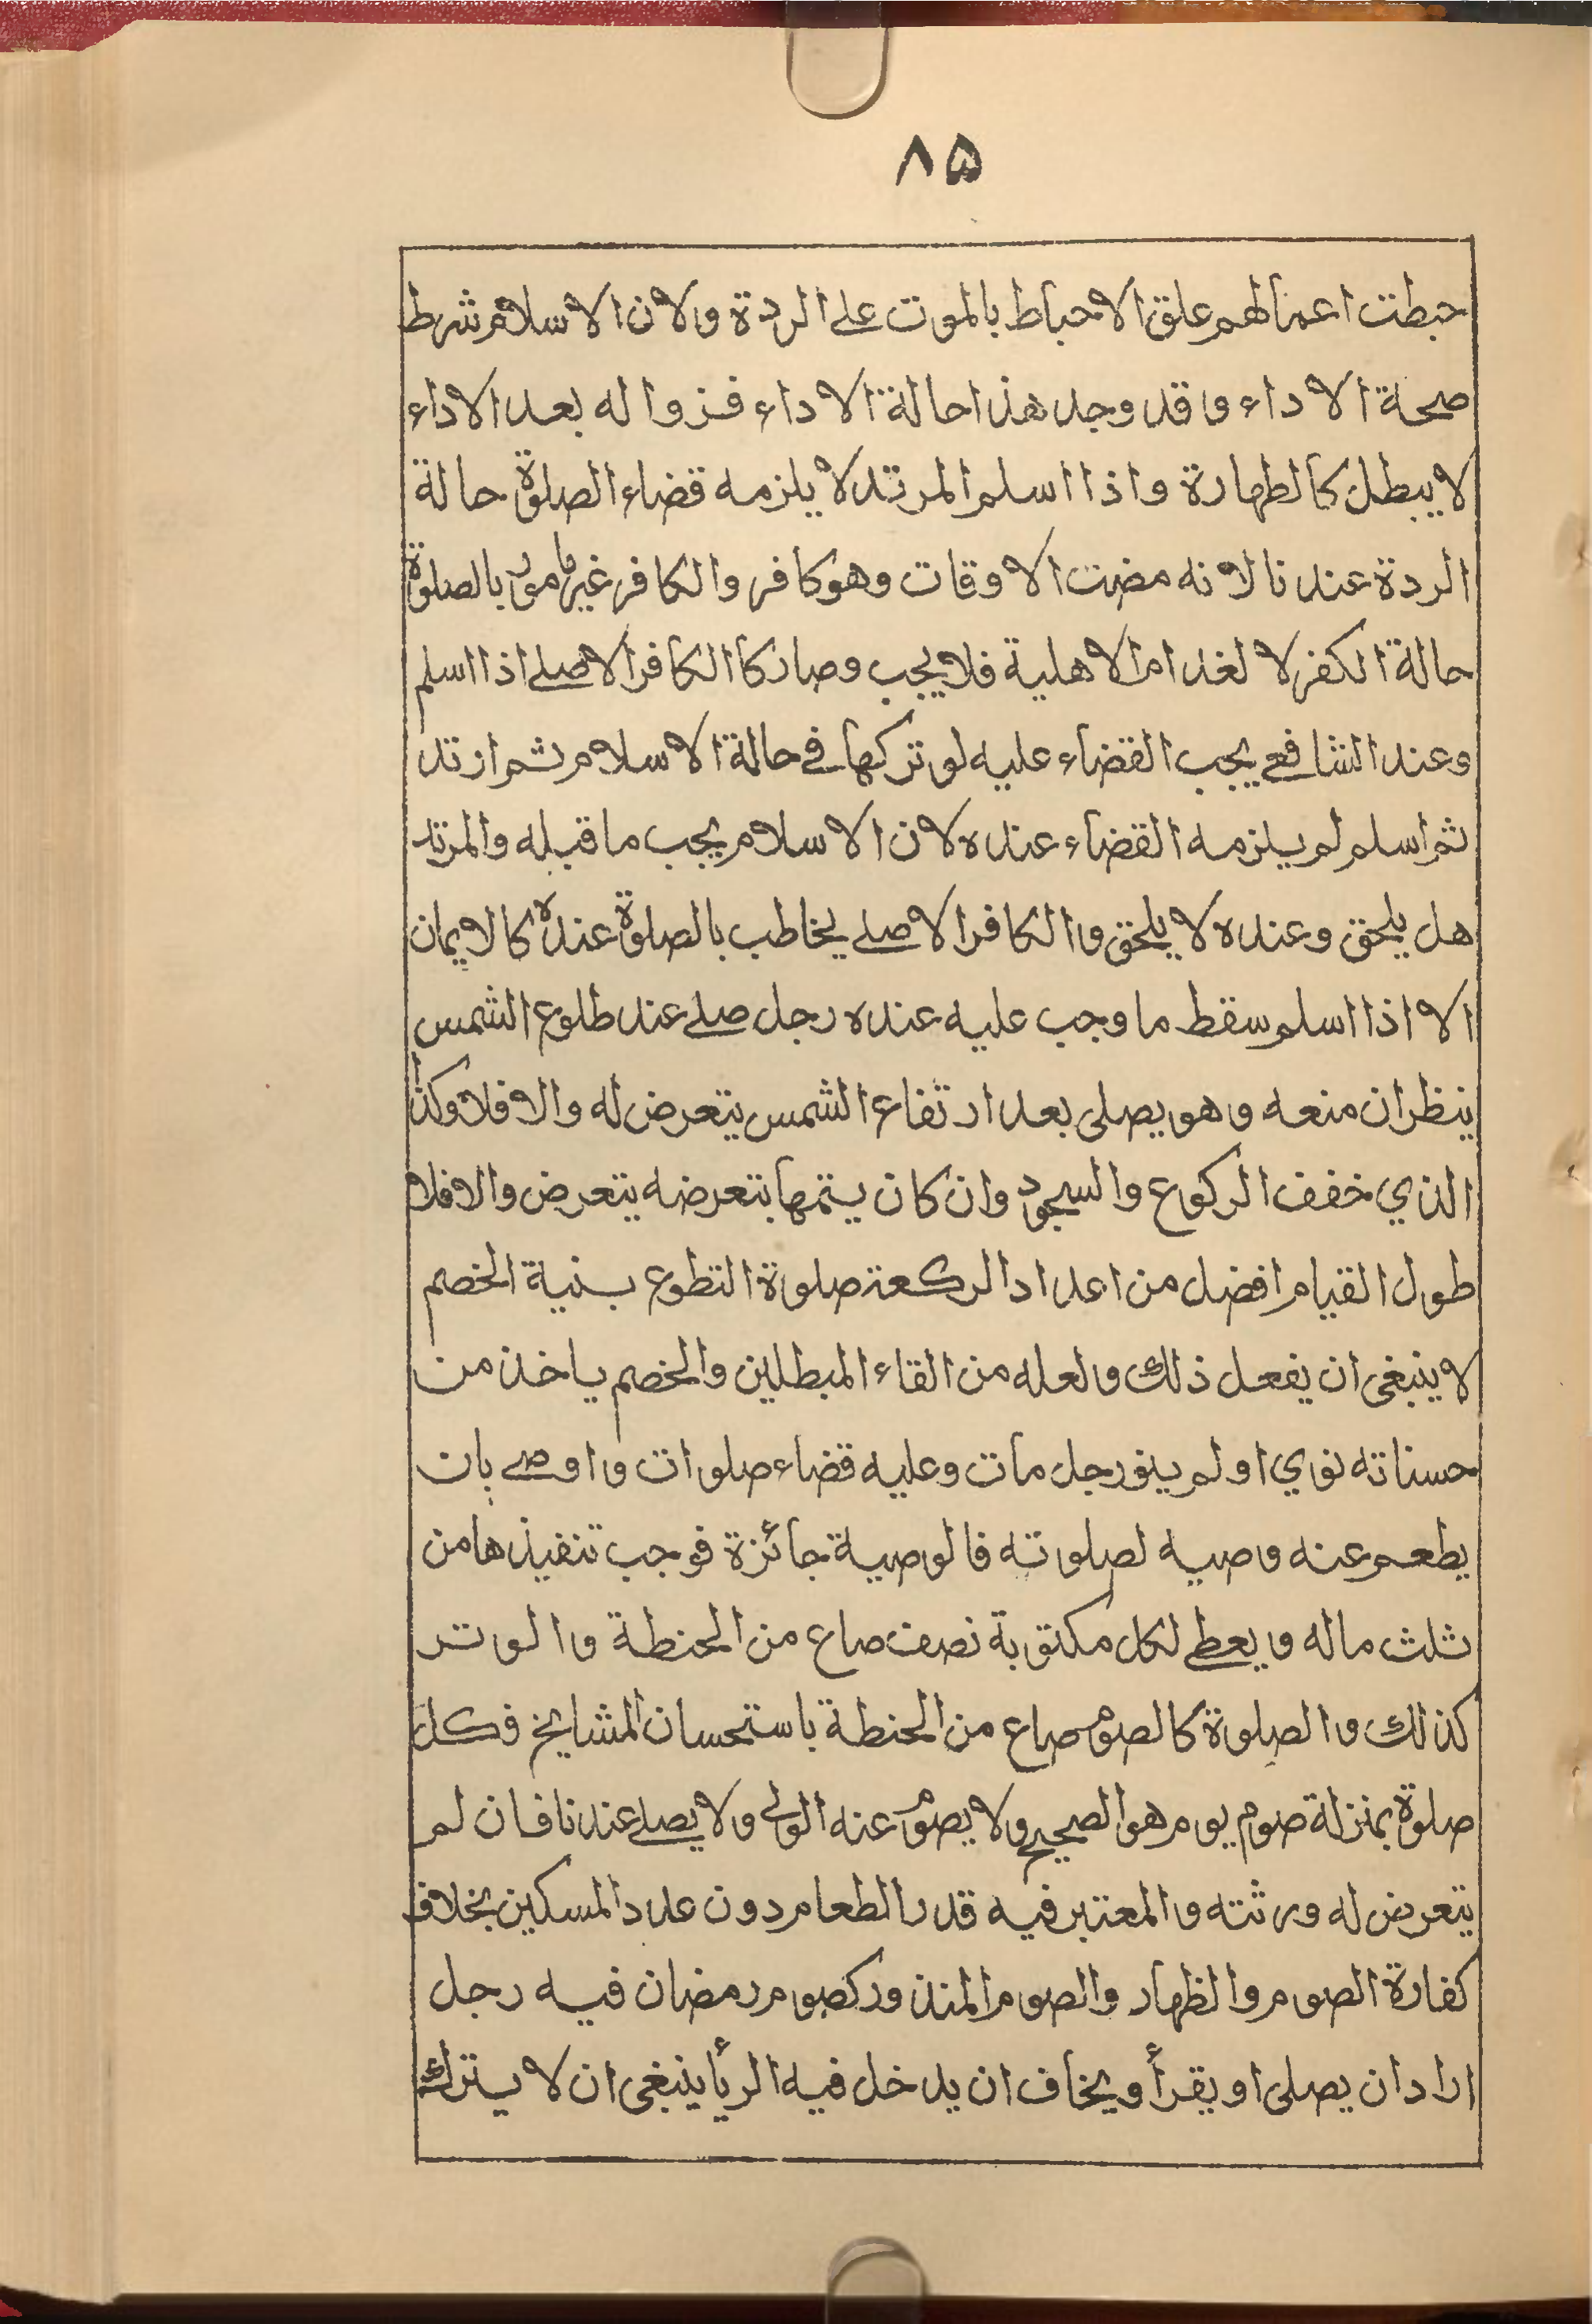 ۸۵
حبطت اعمالهم علق الاحباط بالموت على الردة ولان الاسلام شرط
صحة الاداء وقد وجد هذا حالة الاداء فزواله بعد الاداء
لا يبطل كالطهارة واذا اسلم المرتد لا يلزمه قضاء الصلوة حالة
الردة عندنا لانه مضت الاوقات وهو كافر والكافر غير مامور بالصلوة
حالة الكفر لا لغدام الاهلية فلا يجب وصار كا الكافر الاصلے اذا اسلم
وعند الشافعے يجب القضاء عليه لو تركها فے حالة الاسلام ثم ارتد
ثم اسلم لم يلزمه القضاء عنده لان الاسلام يجب ما قبله والمرتد
هل يلحق وعنده لا يلحق والكافر الاصلے يخاطب بالصلوة عنده كالايمان
الا اذا اسلم سقط ما وجب عليه عنده رجل صلے عند طلوع الشمس
ينظر ان منعه وهو يصلى بعد ارتفاع الشمس يتعرض له والا فلا وكذا
الذي خفف الركوع والسجود وان كان يتمها بتعرضه يتعرض والا فلا
طول القيام افضل من اعداد الركعة صلوة التطوع بنية الخصم
لا ينبغى ان يفعل ذلك ولعله من القاء المبطلين والخصم ياخذ من
حسناته نوي او لم ينو رجل مات وعليه قضاء صلوات واوصے بان
يطعم عنه وصيه لصلوته فالوصية جائزة فوجب تنفيذها من
ثلث ماله ويعطے لكل مكتوبة نصف صاع من الحنطة والوتر
كذلك والصلوة كالصوم صاع من الحنطة باستحسان المشايخ فكل
صلوة بمنزلة صوم يوم هو الصحيح ولا يصوم عنه الولے ولا يصلے عندنا فان لم
يتعرض له ورثته والمعتبر فيه قدر الطعام دون عدد المسكين بخلاف
كفارة الصوم والظهار والصوم المنذور كصوم رمضان فيه رجل
اراد ان يصلى او يقرأ ويخاف ان يدخل فيه الريأ ينبغى ان لا يترك